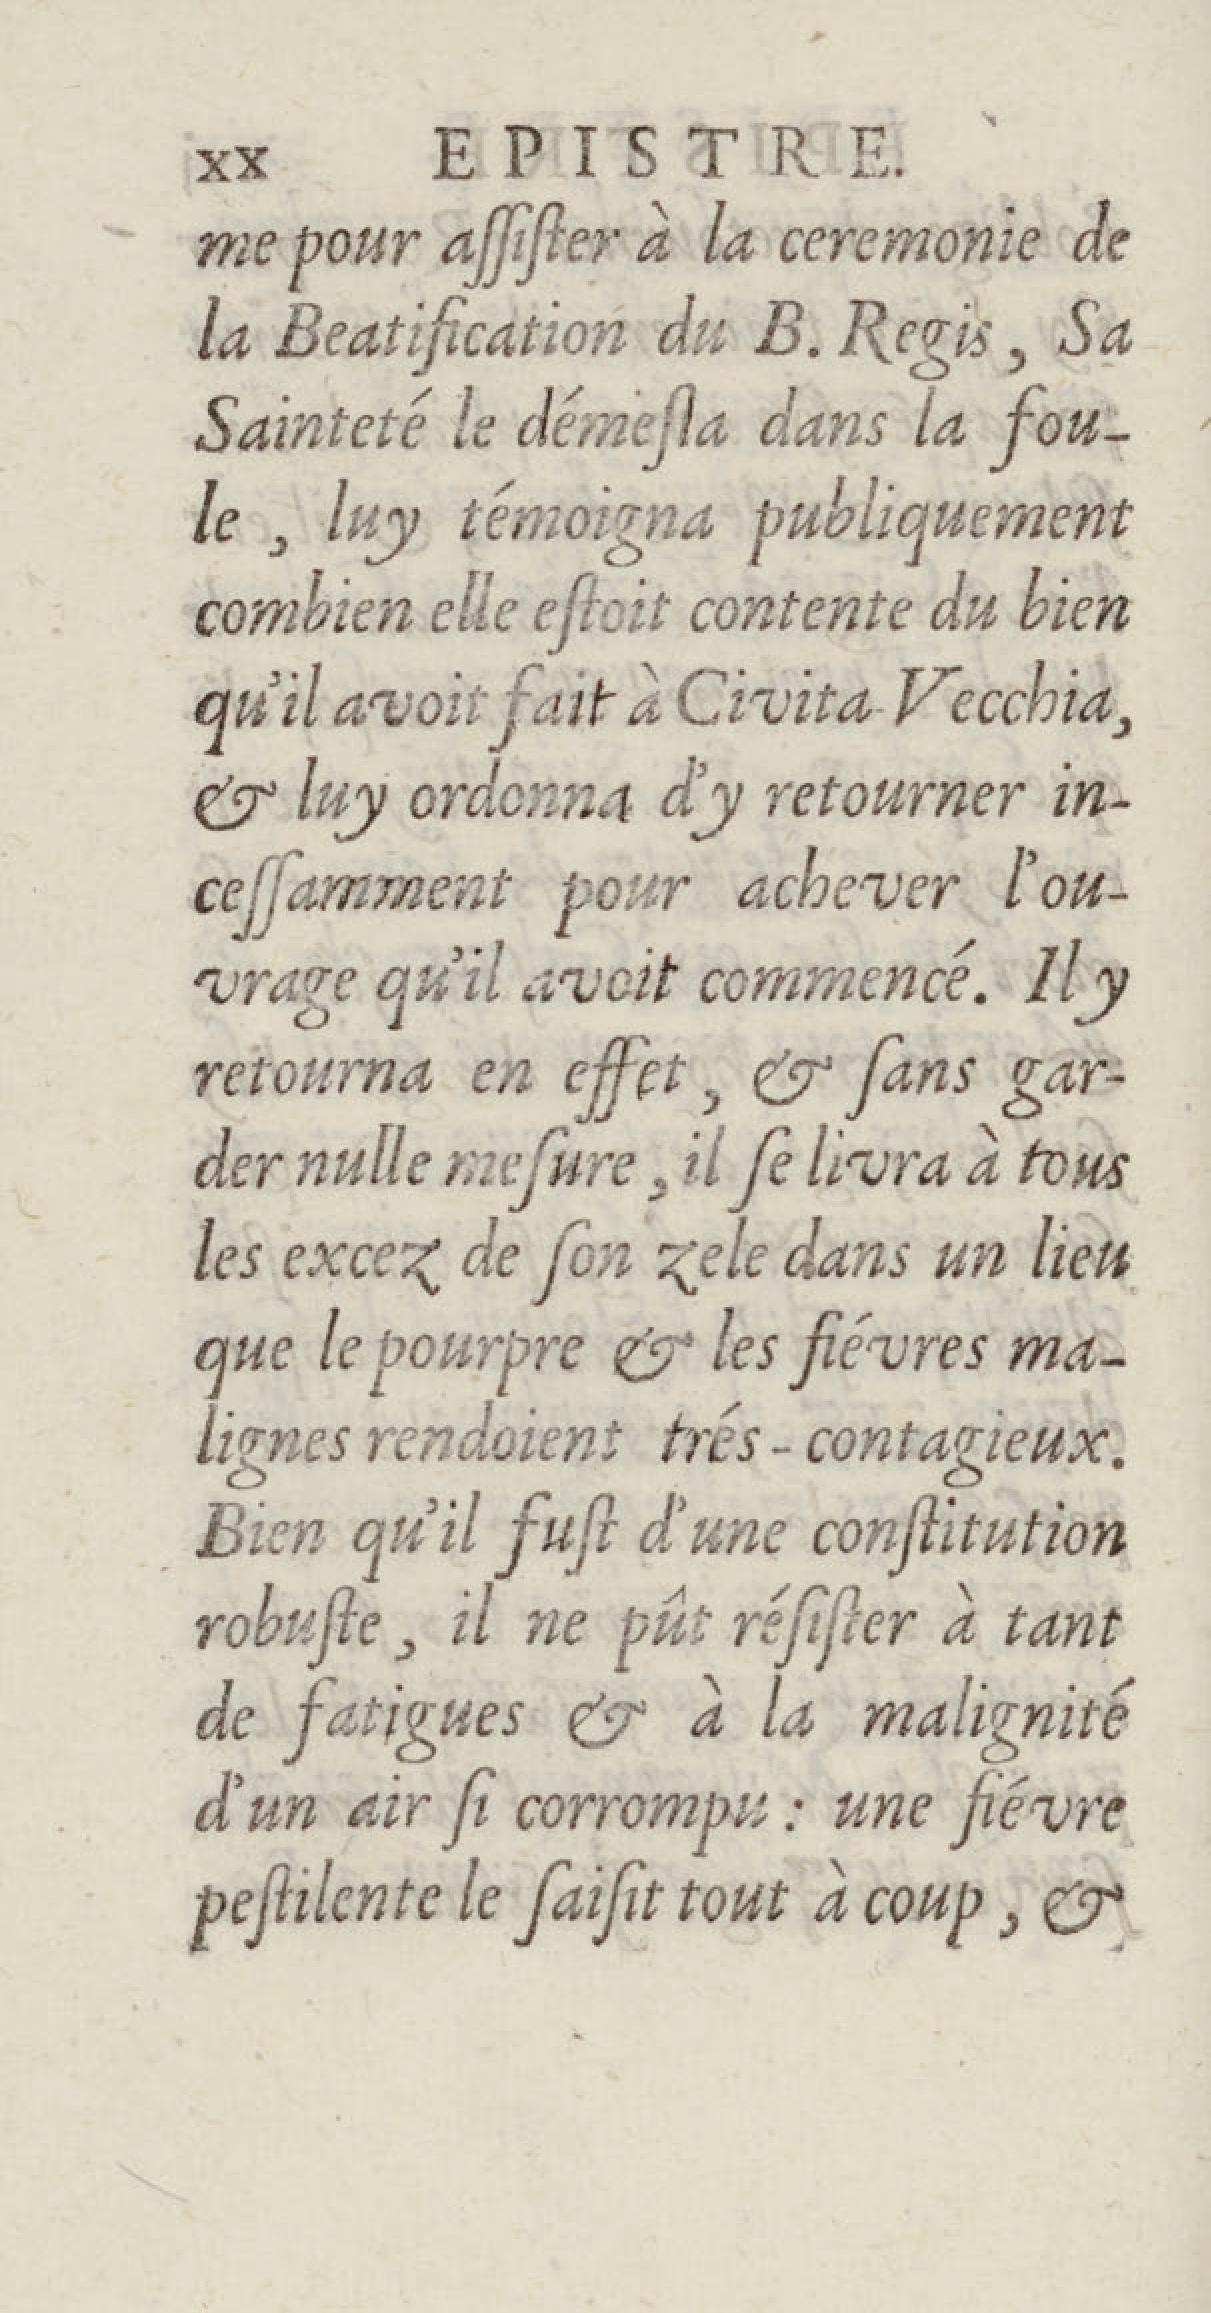 xx EPISTRE.
me pour aſſiſter à la ceremonie de
la Beatification du B. Regis, Sa
Sainteté le démeſla dans la fou-
le, luy témoigna publiquement
combien elle eſtoit contente du bien
qu'il avoit fait à Civita-Vecchia,
& luy ordonna d'y retourner in-
ceſſamment pour achever l'ou-
vrage qu'il avoit commencé. Il y
retourna en effet, & ſans gar-
der nulle meſure, il ſe livra à tous
les excez de ſon zele dans un lieu
que le pourpre & les fiévres ma-
lignes rendoient trés-contagieux.
Bien qu'il fuſt d'une conſtitution
robuſte, il ne pût réſiſter à tant
de fatigues & à la malignité
d'un air ſi corrompu : une fiévre
peſtilente le ſaiſit tout à coup, &